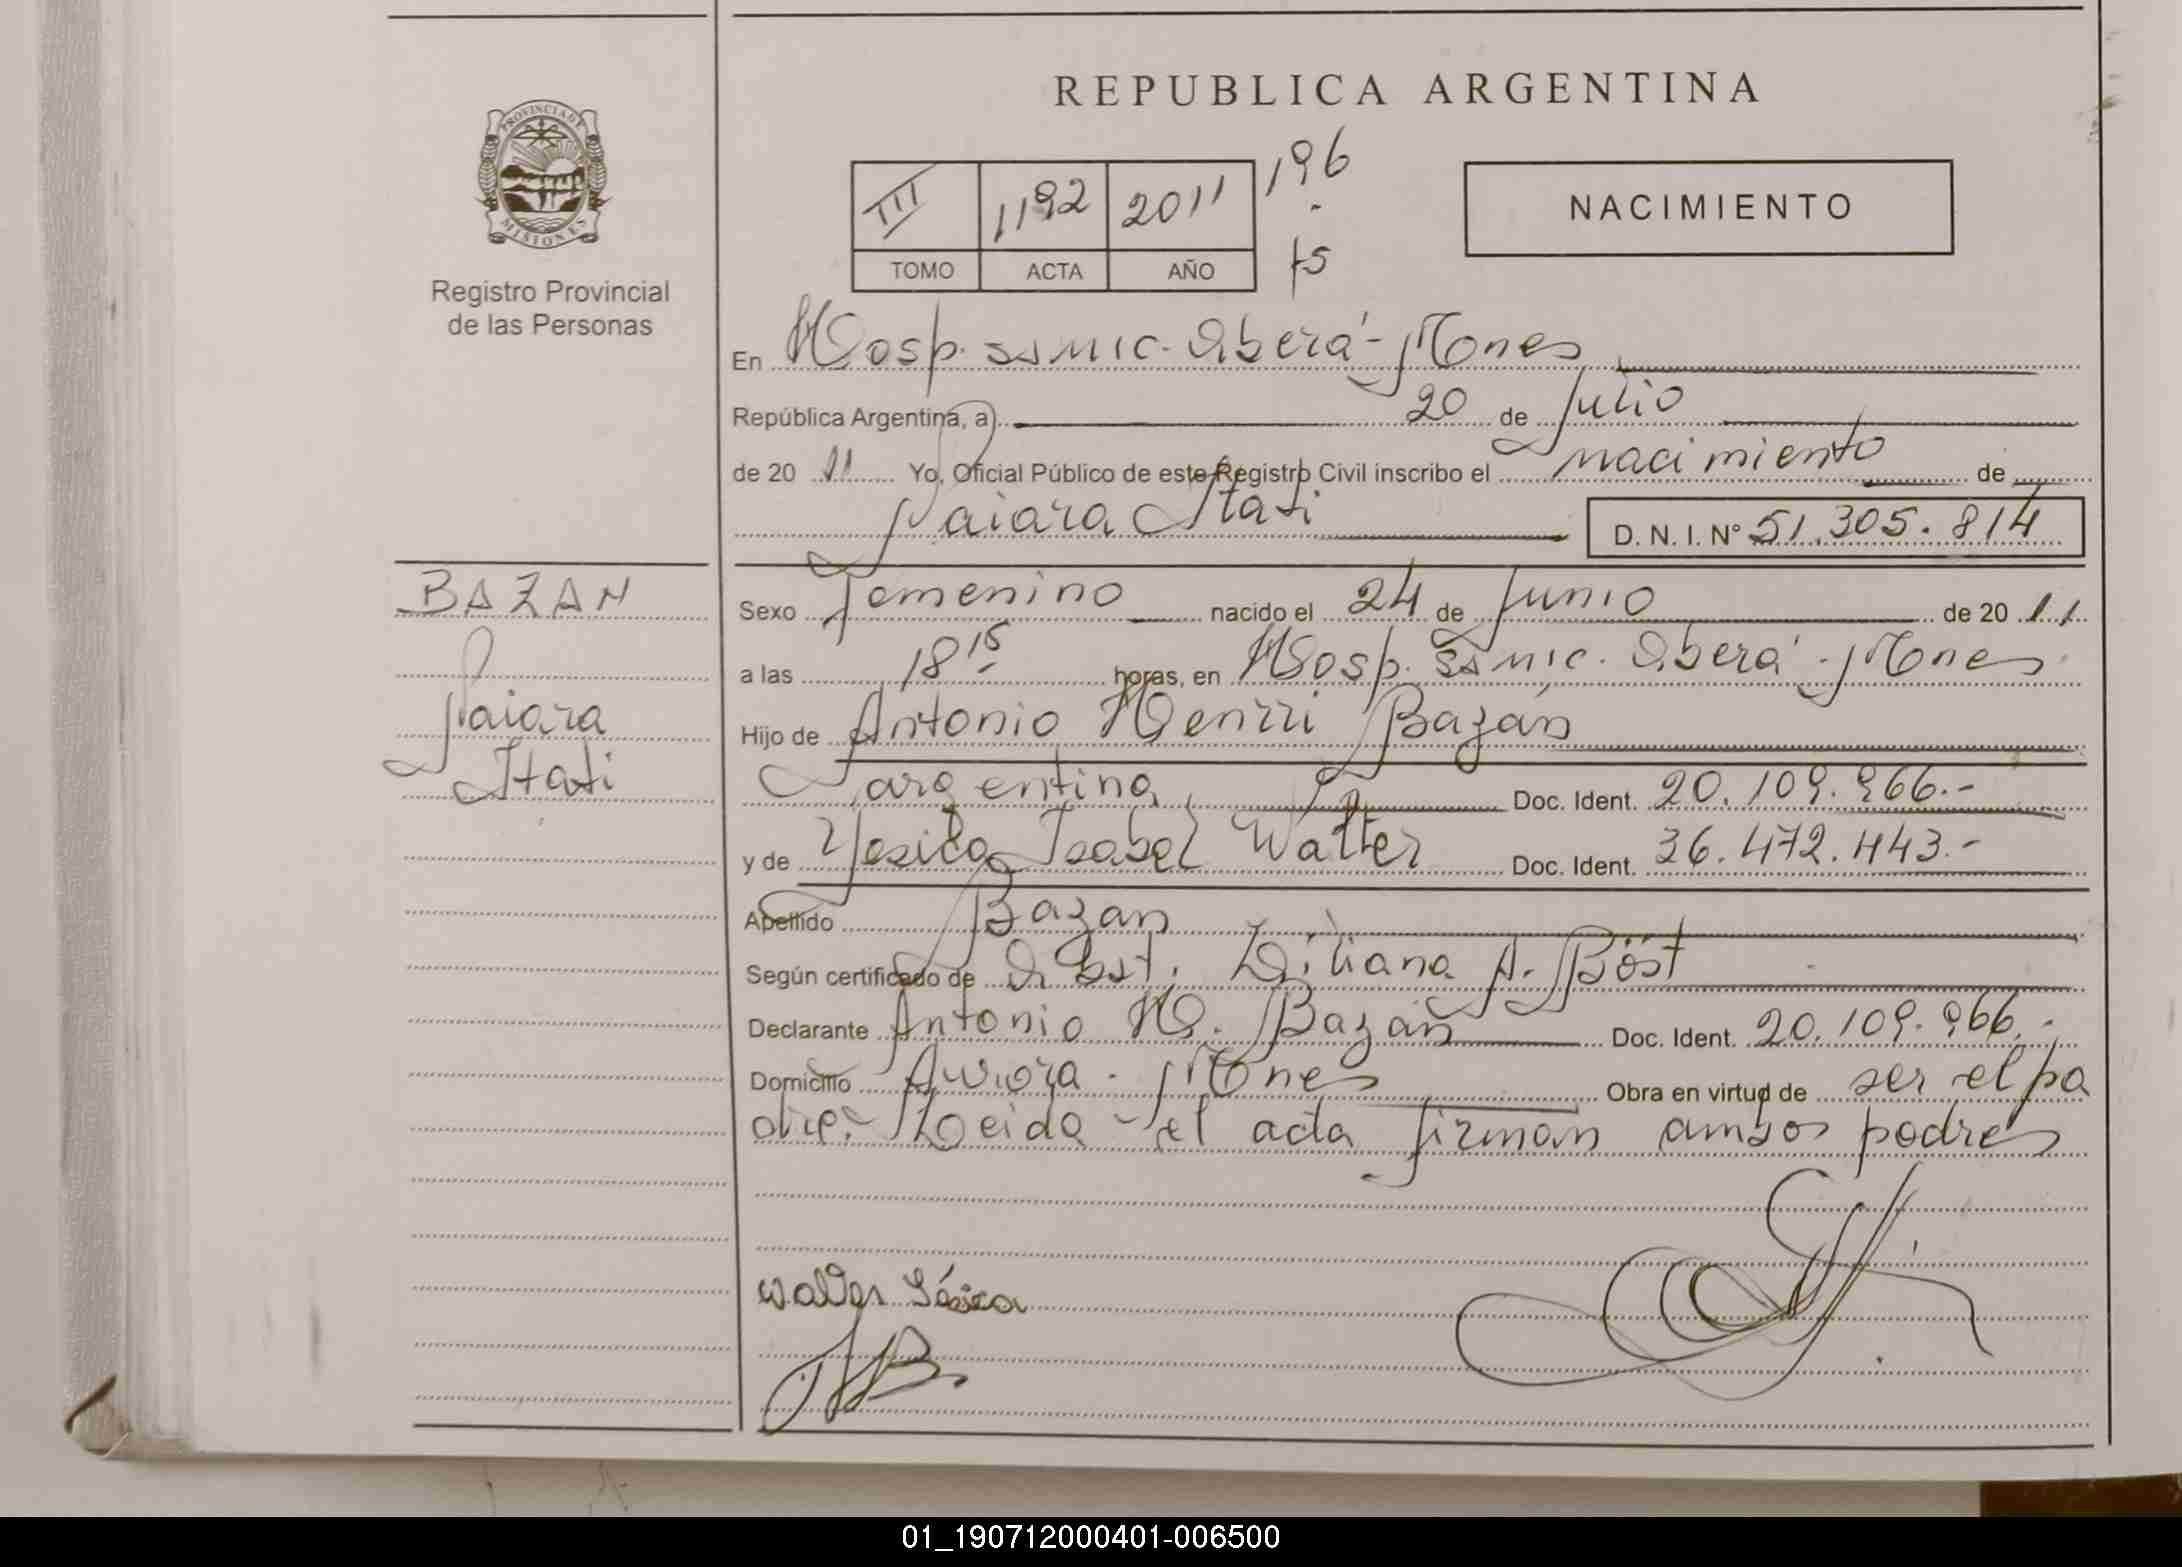 REPUBLICA ARGENTINA
PROVINCIA DE MISIONES
Registro Provincial
de las Personas
III 1192 2011 196
TOMO ACTA AÑO
NACIMIENTO
En Hosp. SAMIC. Oberá - Mones
República Argentina, a 20 de Julio
de 20 11 Yo, Oficial Público de este Registro Civil inscribo el nacimiento de
Naiara Itati D. N. I. Nº 51.305.814
BAZAN
Naiara
Itati
Sexo Femenino nacido el 24 de Junio de 20 11
a las 18 15 horas, en Hosp. SAMIC. Oberá - Mones
Hijo de Antonio Henrri Bazán
argentina Doc. Ident. 20.109.966.-
y de Yesica Isabel Walter Doc. Ident. 36.472.443.-
Apellido Bazan
Según certificado de Obst. Liliana A. Böst
Declarante Antonio H. Bazán Doc. Ident. 20.109.966.-
Domicilio Aurora - Mones Obra en virtud de ser el pa
dre. Leida el acta firman ambos padres
Walter Yésica
01_190712000401-006500